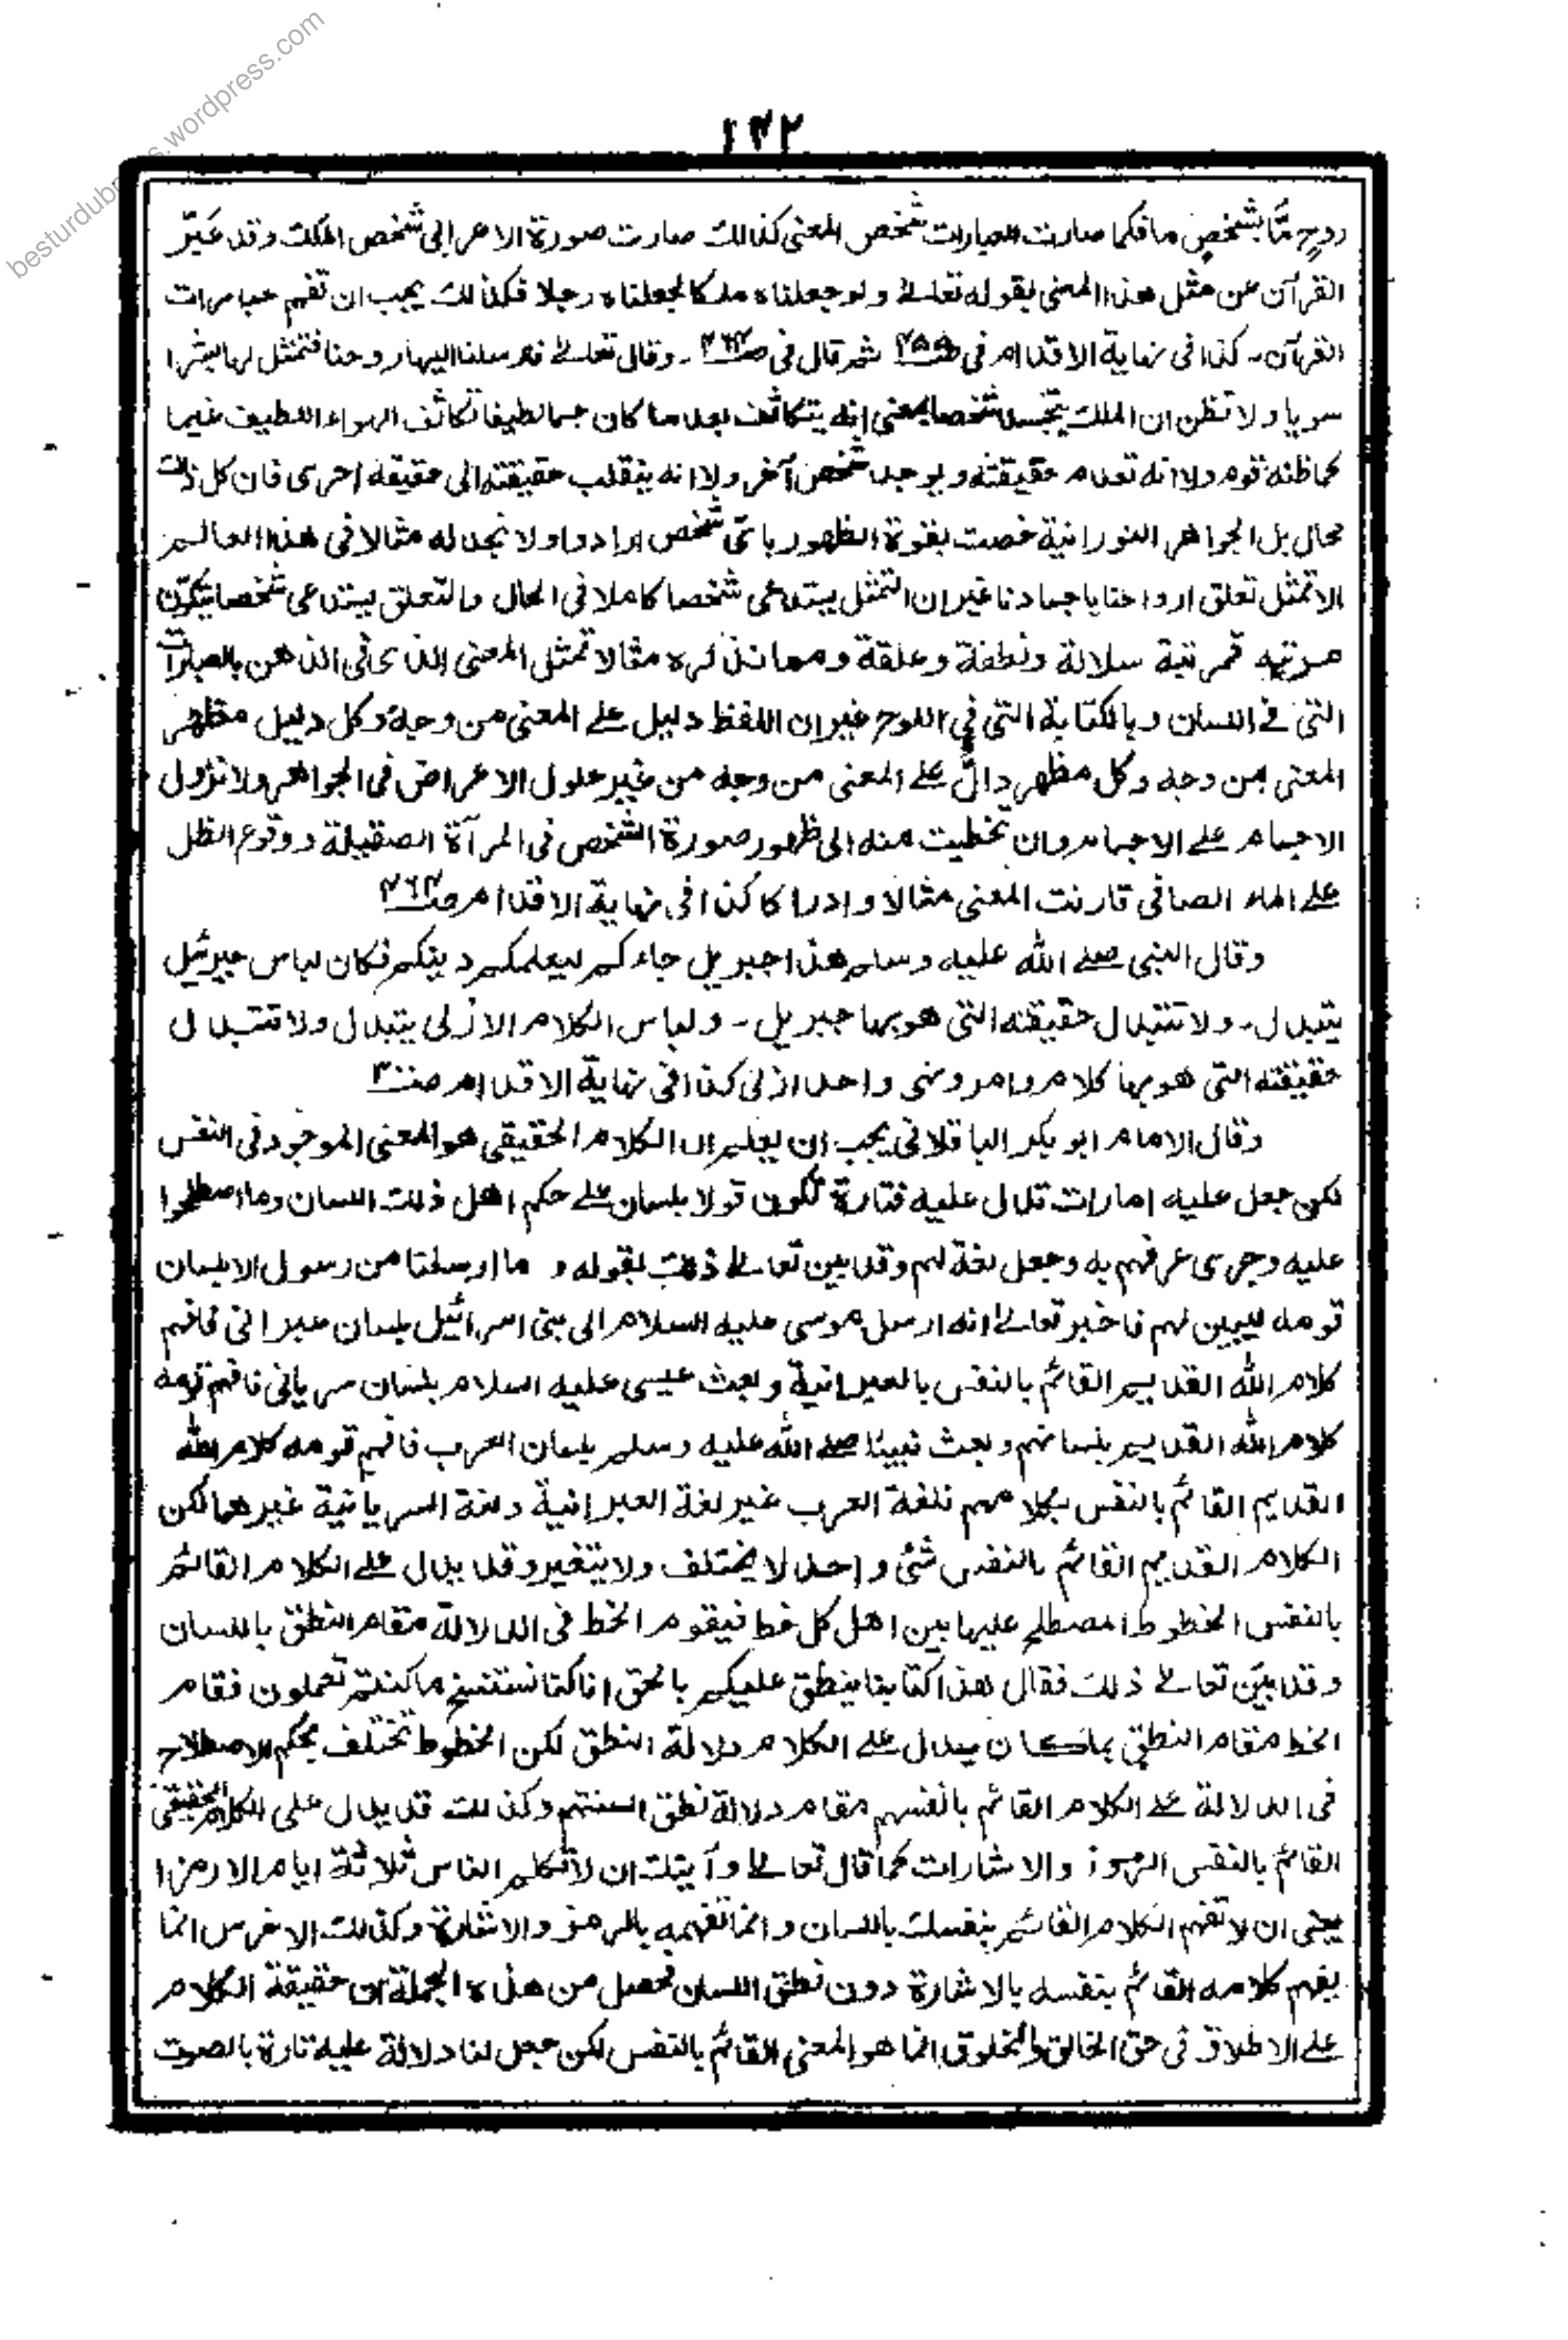 besturdubooks.wordpress.com
١٣٢
روحٍ مّا بشخصٍ ما فكما صارت العبارات شخص المعنى كذالك صارت صورة الاعرابى شخص الملك وقد عَبّر
القرآن عن مثل هذا المعنى بقوله تعالے ولو جعلناه ملكا لجعلناه رجلا فكذالك يجب ان تفهم عبارات
القرآن۔ كذا فى نهاية الاقدام فى ثم قال فى ۔ وقال تعالے فارسلنا اليها روحنا فتمثل لها بشرا
سويا ولا تظن ان الملك يتجسد شخصا بمعنى انه يتكاثف بعد ما كان جسما لطيفا تكاثف الهواء اللطيف غيما
كما ظنه قوم ولا انه تعدم حقيقته ويوجد شخص آخر ولا انه ينقلب حقيقته الى حقيقة اخرى فان كل ذلك
محال بل الجواهر النورانية خصت بقوة الظهور باىّ شخص ارادوا ولا نجد له مثالا فى هذا العالم
الا تمثل تعلق ارواحنا باجسادنا غير ان التمثل يستدعى شخصا كاملا فى الحال والتعلق يستدعى شخصا يتكوّن
مرتبة فمرتبة سلالة ونطفة وعلقة ومما نذكره مثالا تمثل المعنى الذى فى الذهن بالعبارات
التى فے اللسان وبالكتابة التى فى اللوح غير ان اللفظ دليل علے المعنى من وجه وكل دليل مظهر
المعنى من وجه وكل مظهر دالّ علے المعنى من وجه من غير حلول الاعراض فى الجواهر ولا نزول
الاجسام علے الاجسام وان تخطيت منه الى ظهور صورة الشخص فى المرآة الصقيلة ووقوع الظل
علے الماء الصافى قارنت المعنى مثالا وادراكا كذا فى نهاية الاقدام
وقال النبى صلے الله عليه وسلم هذا جبريل جاءكم ليعلمكم دينكم فكان لباس جبرئيل
يتبدل۔ ولا تتبدل حقيقته التى هو بها جبريل۔ ولباس الكلام الازلى يتبدل ولا تتبدل
حقيقته التى هو بها كلام وامر ونهى واحد ازلى كذا فى نهاية الاقدام
وقال الامام ابو بكر الباقلانى يجب ان يعلم ان الكلام الحقيقى هو المعنى الموجود فى النفس
لكن جعل عليه امارات تدل عليه فتارة تكون قولا بلسان علے حكم اهل ذلك اللسان وما اصطلحوا
عليه وجرى عرفهم به وجعل لغة لهم وقد بين تعالے ذلك بقوله و ما ارسلنا من رسول الا بلسان
قومه ليبين لهم فاخبر تعالے انه ارسل موسى عليه السلام الى بنى اسرائيل بلسان عبرانى فافهم
كلام الله القديم القائم بالنفس بالعبرانية وبعث عيسى عليه السلام بلسان سريانى فافهم قومه
كلام الله القديم بلسانهم وبعث نبينا صلے الله عليه وسلم بلسان العرب فافهم قومه كلام الله
القديم القائم بالنفس بكلامهم فلغة العرب غير لغة العبرانية ولغة السريانية غيرهما لكن
الكلام القديم القائم بالنفس شئى واحد لا يختلف ولا يتغير وقد يدل علے الكلام القائم
بالنفس الخطوط المصطلح عليها بين اهل كل خط فيقوم الخط فى الدلالة مقام النطق باللسان
وقد بيّن تعالے ذلك فقال هذا كتابنا ينطق عليكم بالحق انا كنا نستنسخ ما كنتم تعملون فقام
الخط مقام النطق بماكان يدل علے الكلام دلالة النطق لكن الخطوط تختلف بحكم الاصطلاح
فى الدلالة علے الكلام القائم بانفسهم مقام دلالة نطق السنتهم وكذلك قد يدل على الكلام الحقيقى
القائم بالنفس الرموز والاشارات كما قال تعالے وآيتك ان لا تكلم الناس ثلاثة ايام الا رمزا
يعنى ان لا تفهم الكلام القائم بنفسك باللسان وانما تفهمه بالرمز والاشارة وكذلك الاخرس انما
يفهم كلامه القائم بنفسه بالاشارة دون نطق اللسان فحصل من هذه الجملة ان حقيقة الكلام
علے الاطلاق فى حق الخالق والمخلوق انما هو المعنى القائم بالنفس لكن جعل لنا دلالة عليه تارة بالصوت